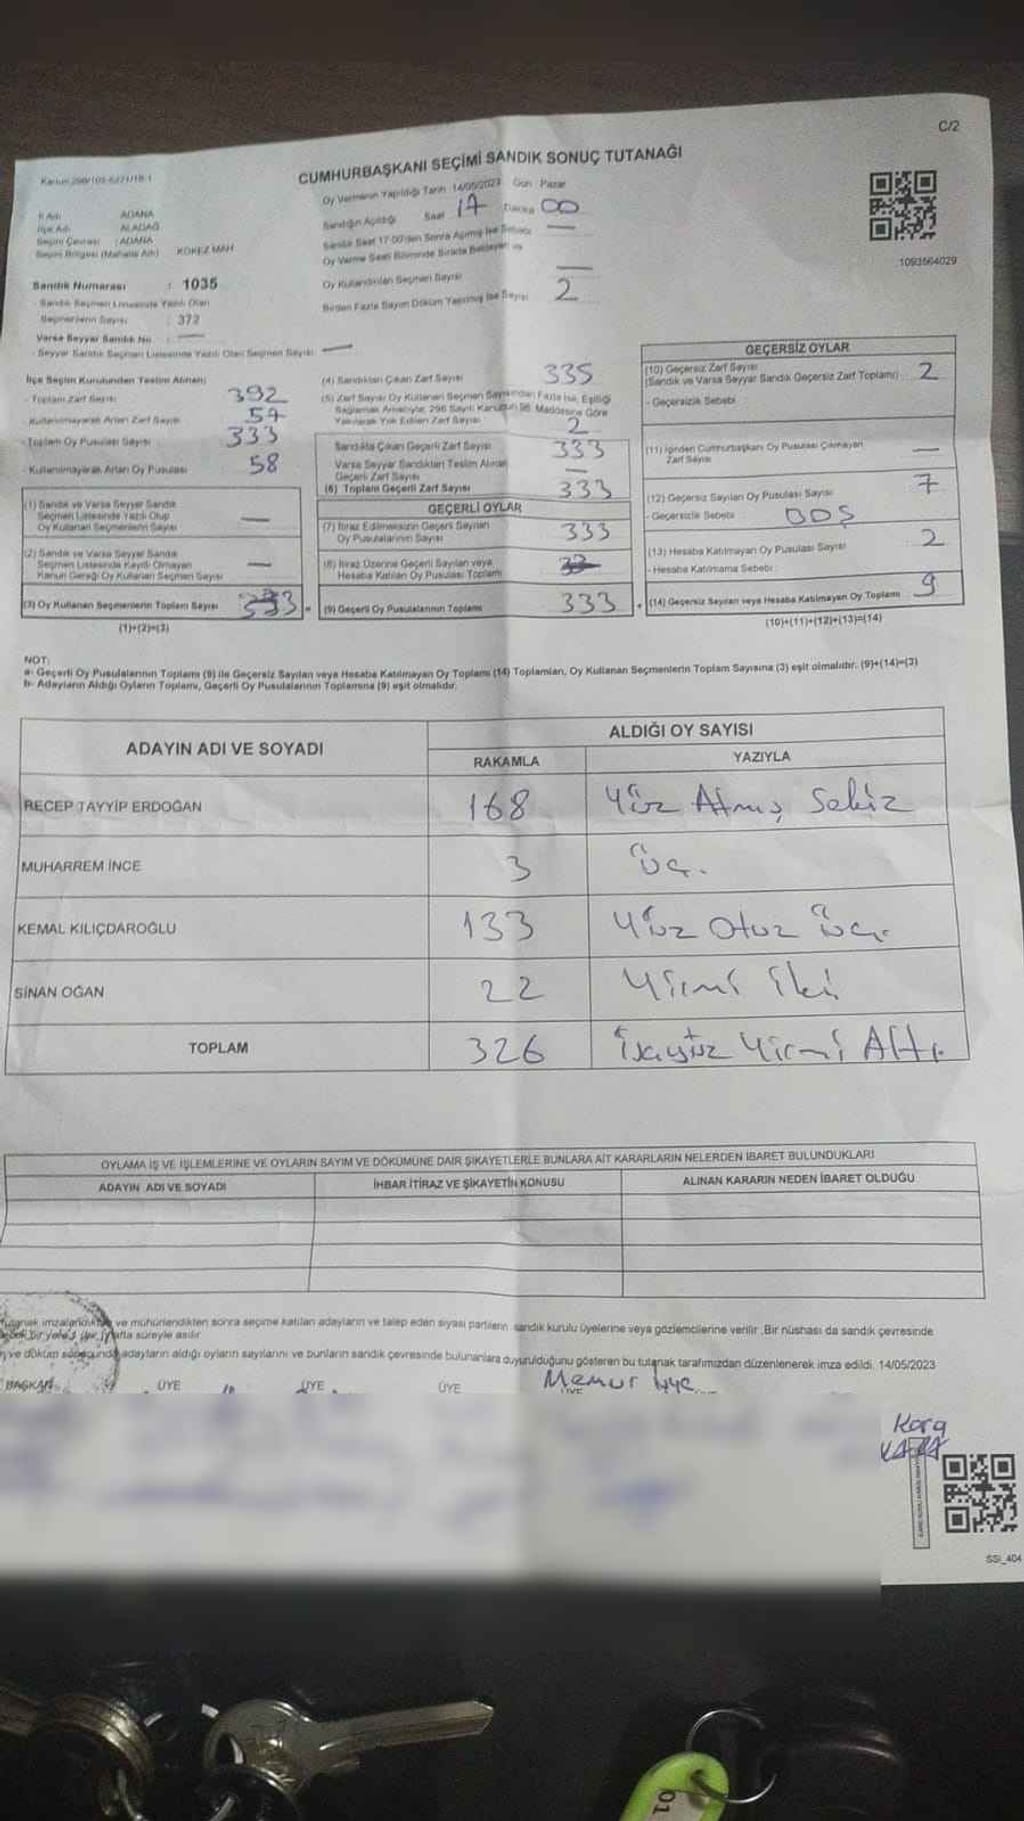 C/2
CUMHURBAŞKANI SEÇİMİ SANDIK SONUÇ TUTANAĞI
Oy Vermenin Yapıldığı Tarih 14/05/2023 Gün Pazar
İl Adı ADANA
İlçe Adı ALADAĞ
Seçim Çevresi : ADANA
Seçim Bölgesi (Mahalle Adı) KÖKEZ MAH
Sandığın Açıldığı Saat 17 Dakika 00
Sandık Saat 17:00'den Sonra Açılmış İse Sebebi —
Oy Verme Saati Bitiminde Sırada Bekleyen ve
Oy Kullandırılan Seçmen Sayısı —
Birden Fazla Sayım Döküm Yapılmış İse Sayısı 2
1093564029
Sandık Numarası : 1035
- Sandık Seçmen Listesinde Yazılı Olan
Seçmenlerin Sayısı : 372
Varsa Seyyar Sandık No : —
- Seyyar Sandık Seçmen Listesinde Yazılı Olan Seçmen Sayısı : —
İlçe Seçim Kurulundan Teslim Alınan;
- Toplam Zarf Sayısı 392
Kullanılmayarak Artan Zarf Sayısı 57
- Toplam Oy Pusulası Sayısı 333
- Kullanılmayarak Artan Oy Pusulası 58
(1) Sandık ve Varsa Seyyar Sandık
Seçmen Listesinde Yazılı Olup
Oy Kullanan Seçmenlerin Sayısı —
(2) Sandık ve Varsa Seyyar Sandık
Seçmen Listesinde Kayıtlı Olmayan
Kanun Gereği Oy Kullanan Seçmen Sayısı —
(3) Oy Kullanan Seçmenlerin Toplam Sayısı 333 =
(1)+(2)=(3)
(4) Sandıktan Çıkan Zarf Sayısı 335
(5) Zarf Sayısı Oy Kullanan Seçmen Sayısından Fazla İse, Eşitliği
Sağlamak Amacıyla, 298 Sayılı Kanunun 98. Maddesine Göre
Yakılarak Yok Edilen Zarf Sayısı 2
Sandıkta Çıkan Geçerli Zarf Sayısı 333
Varsa Seyyar Sandıktan Teslim Alınan
Geçerli Zarf Sayısı —
(6) Toplam Geçerli Zarf Sayısı 333
GEÇERLİ OYLAR
(7) İtiraz Edilmeksizin Geçerli Sayılan
Oy Pusulalarının Sayısı 333
(8) İtiraz Üzerine Geçerli Sayılan veya
Hesaba Katılan Oy Pusulası Toplamı
(9) Geçerli Oy Pusulalarının Toplamı 333 +
GEÇERSİZ OYLAR
(10) Geçersiz Zarf Sayısı
(Sandık ve Varsa Seyyar Sandık Geçersiz Zarf Toplamı) 2
- Geçersizlik Sebebi :
(11) İçinden Cumhurbaşkanı Oy Pusulası Çıkmayan
Zarf Sayısı —
(12) Geçersiz Sayılan Oy Pusulası Sayısı 7
- Geçersizlik Sebebi : BOŞ
(13) Hesaba Katılmayan Oy Pusulası Sayısı 2
- Hesaba Katılmama Sebebi :
(14) Geçersiz Sayılan veya Hesaba Katılmayan Oy Toplamı 9
(10)+(11)+(12)+(13)=(14)
NOT:
a- Geçerli Oy Pusulalarının Toplamı (9) ile Geçersiz Sayılan veya Hesaba Katılmayan Oy Toplamı (14) Toplamları, Oy Kullanan Seçmenlerin Toplam Sayısına (3) eşit olmalıdır. (9)+(14)=(3)
b- Adayların Aldığı Oyların Toplamı, Geçerli Oy Pusulalarının Toplamına (9) eşit olmalıdır.
ADAYIN ADI VE SOYADI ALDIĞI OY SAYISI
RAKAMLA YAZIYLA
RECEP TAYYİP ERDOĞAN 168 Yüz Atmış Sekiz
MUHARREM İNCE 3 Üç.
KEMAL KILIÇDAROĞLU 133 Yüz Otuz Üç.
SİNAN OĞAN 22 Yirmi iki
TOPLAM 326 Üçyüz Yirmi Altı.
OYLAMA İŞ VE İŞLEMLERİNE VE OYLARIN SAYIM VE DÖKÜMÜNE DAİR ŞİKAYETLERLE BUNLARA AİT KARARLARIN NELERDEN İBARET BULUNDUKLARI
ADAYIN ADI VE SOYADI İHBAR İTİRAZ VE ŞİKAYETİN KONUSU ALINAN KARARIN NEDEN İBARET OLDUĞU
tutanak imzalandıktan ve mühürlendikten sonra seçime katılan adayların ve talep eden siyasi partilerin sandık kurulu üyelerine veya gözlemcilerine verilir. Bir nüshası da sandık çevresinde
bir yere hafta süreyle asılır
ve döküm sonucunda adayların aldığı oyların sayılarını ve bunların sandık çevresinde bulunanlara duyurulduğunu gösteren bu tutanak tarafımızdan düzenlenerek imza edildi. 14/05/2023
BAŞKAN ÜYE ÜYE ÜYE Memur üye
ÜYE
Kara
KARA
SSİ_404
01